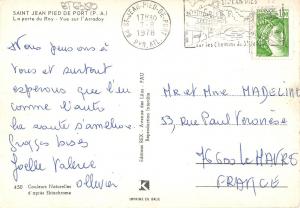 SAINT JEAN PIED DE PORT (P. A.)
La porte du Roy - Vue sur l'Arradoy
Nous pensons à
vous et surtout
espérons que l'un
comme l'autre
la santé s'améliore.
Grosses bises
Joelle Valérie
Ollivier
450 Couleurs Naturelles
d'après Ektachrome
Editions REX - Avenue des Lilas - PAU
Reproduction interdite
K
IMPRIME EN
64 ST-JEAN-PIED-DE-PORT
17H30
1978
PYR. ATL.
sur les Chemins de St
1,00
Mr et Mme MADELINE
53, rue Paul Véronèse
76600 Le HAVRE
FRANCE